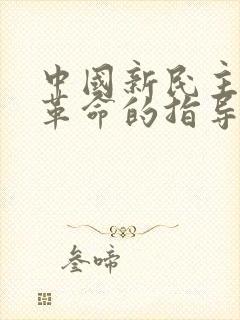 中國新民主
革命的指导
叁啼